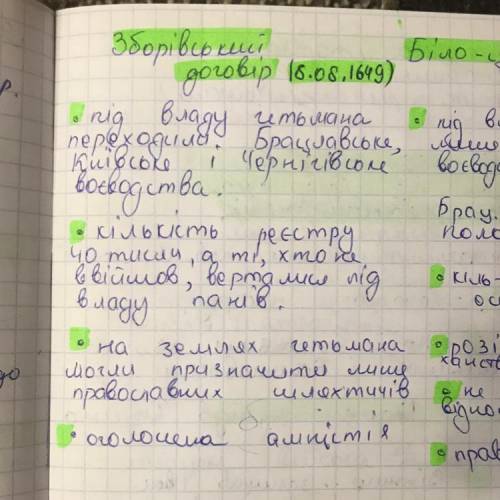 Зборівський
договір (8.08.1649)
Біло-ц
• під владу гетьмана
переходила Брацлавське,
Київське і Чернігівське
воєводства.
• кількість реєстру
40 тисяч, а ті, хто не
ввійшов, верталися під
владу панів.
• на землях гетьмана
могли призначити лише
православних шляхтичів
• оголошена амністія
• під в
лише
воєвод
Брац.
поло
• кіль-
ос
• розі
ханств
• не
віднос
• прав
р.
до